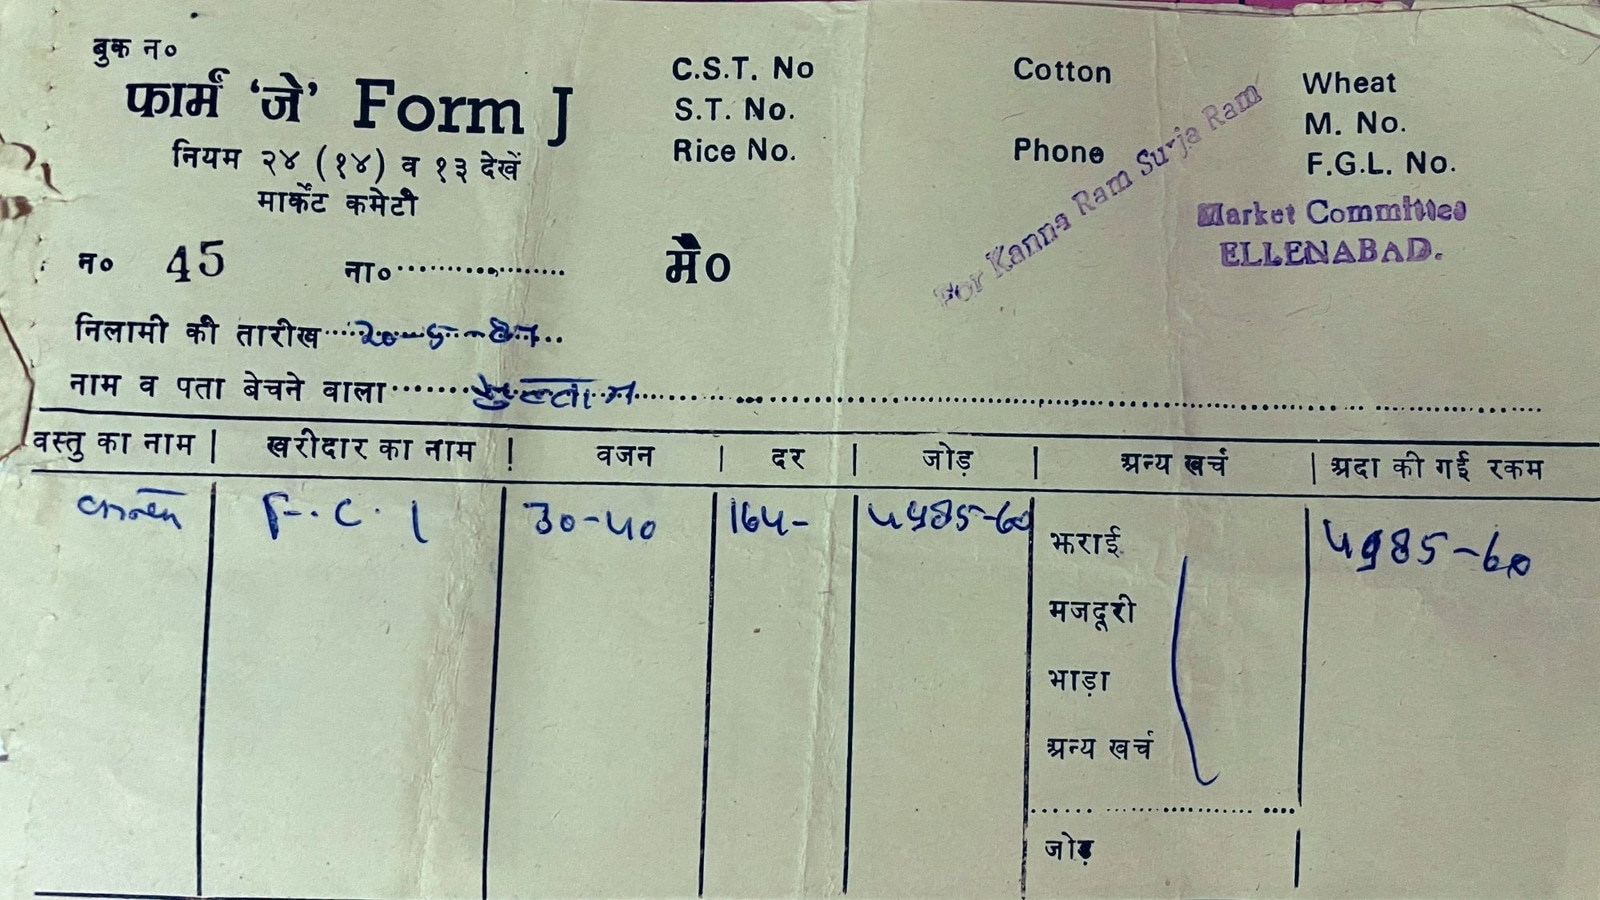 बुक न०
फार्म 'जे' Form J
नियम २४ (१४) व १३ देखें
मार्केट कमेटी
C.S.T. No
S.T. No.
Rice No.
Cotton
Phone
Wheat
M. No.
F.G.L. No.
For Kanna Ram Surja Ram
Market Committee
ELLENABAD.
न० 45 ना०....................
मै०
निलामी की तारीख 20-5-87
नाम व पता बेचने वाला
वस्तु का नाम | खरीदार का नाम | वजन | दर | जोड़ | अन्य खर्च | अदा की गई रकम
F.C.I 30-40 164- 4985-60 4985-60
भराई
मजदूरी
भाड़ा
अन्य खर्च
जोड़